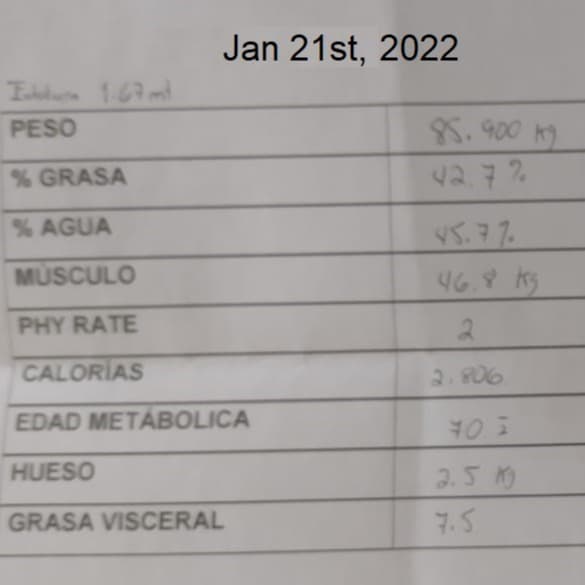 Jan 21st, 2022
Estatura 1.67 mt
PESO 85.900 Kg
% GRASA 42.7 %
% AGUA 45.7 %
MÚSCULO 46.8 Kg
PHY RATE 2
CALORÍAS 2.806
EDAD METÁBOLICA 70
HUESO 2.5 Kg
GRASA VISCERAL 7.5